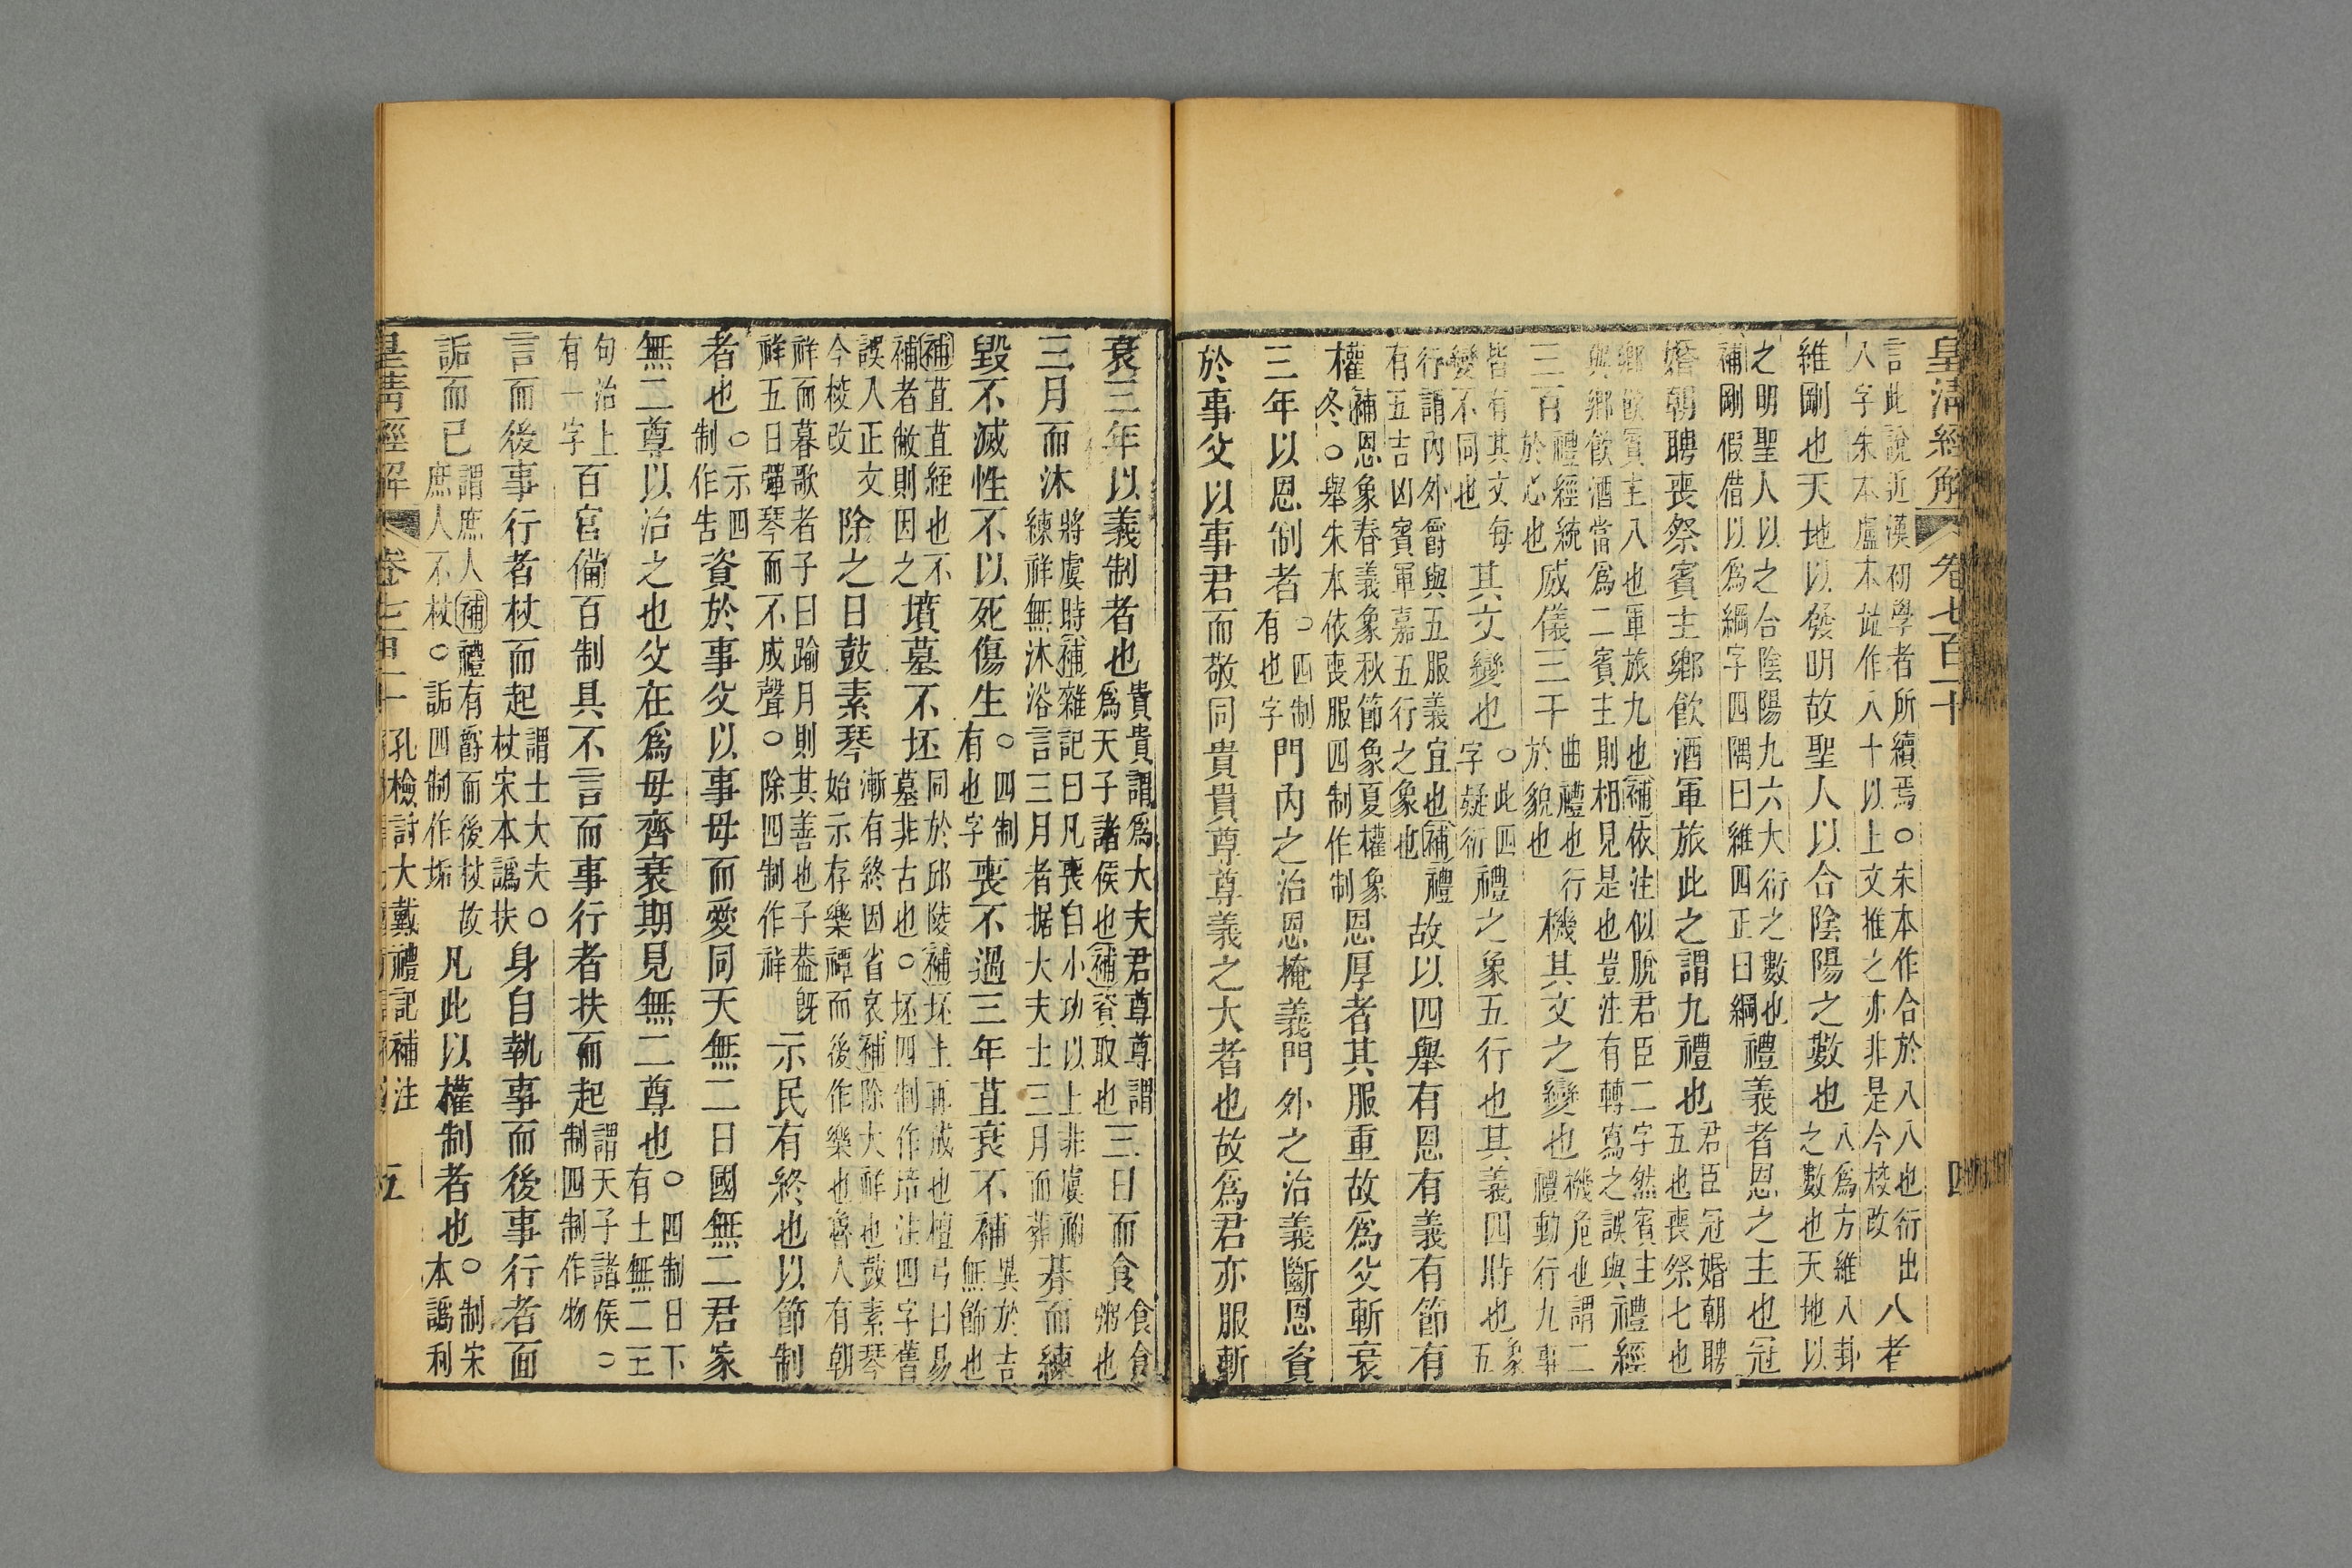 皇清經解 卷七百一十 四
言此說近漢初學者所續焉○宋本作合於八八也衍出
入字朱本盧本並作八十以上文推之亦非是今校改
八者
維剛也天地以發明故聖人以合陰陽之數也
八爲方維八卦
之數也天地以
之明聖人以之合陰陽九六大衍之數也
補剛假借以爲綱字四隅曰維四正曰綱
禮義者恩之主也冠
婚朝聘喪祭賓主鄉飮酒軍旅此之謂九禮也
君臣冠婚朝聘
五也喪祭七也
鄉飮賓主八也軍旅九也補依注似脫君臣二字然賓主
與鄉飮酒當爲二賓主則相見是也豈注有轉寫之誤與
禮經
三百
禮經統
於心也
威儀三千
曲禮也行
於貌也
機其文之變也
機危也謂二
禮動行九事
皆有其文每
變不同也
其文變也
○此四
字疑衍
禮之象五行也其義四時也
象
五
行謂內外爵與五服義宜也補禮
有五吉凶賓軍嘉五行之象也
故以四舉有恩有義有節有
權
補恩象春義象秋節象夏權象
冬○舉朱本依喪服四制作制
恩厚者其服重故爲父斬衰
三年以恩制者
○四制
有也字
門內之治恩掩義門外之治義斷恩資
於事父以事君而敬同貴貴尊尊義之大者也故爲君亦服斬
衰三年以義制者也
貴貴謂爲大夫君尊尊謂
爲天子諸侯也補資取也
三日而食
食食
粥也
三月而沐
將虞時補雜記曰凡喪自小功以上非虞祔
練祥無沐浴言三月者據大夫士三月而葬
朞而練
毀不滅性不以死傷生
○四制
有也字
喪不過三年苴衰不補
異於吉
無飾也
補苴苴絰也不
補者敝則因之
墳墓不坯
同於邱陵補坯土再成也檀弓曰易
墓非古也○坯四制作培注四字舊
誤入正文
今校改
除之日鼓素琴
漸有終因省哀補除大祥也鼓素琴
始示存樂禫而後作樂也魯人有朝
祥而暮歌者子曰踰月則其善也子蓋旣
祥五日彈琴而不成聲○除四制作祥
示民有終也以節制
者也
○示四
制作告
資於事父以事母而愛同天無二日國無二君家
無二尊以治之也父在爲母齊衰期見無二尊也
○四制日下
有土無二王
句治上
有一字
百官備百制具不言而事行者扶而起
謂天子諸侯○
制四制作物
言而後事行者杖而起
謂士大夫○
杖宋本譌扶
身自執事而後事行者面
垢而已
謂庶人補禮有爵而後杖故
庶人不杖○垢四制作垢
凡此以權制者也
○制宋
本譌利
皇清經解 卷七百一十 孔檢討大戴禮記補注 五